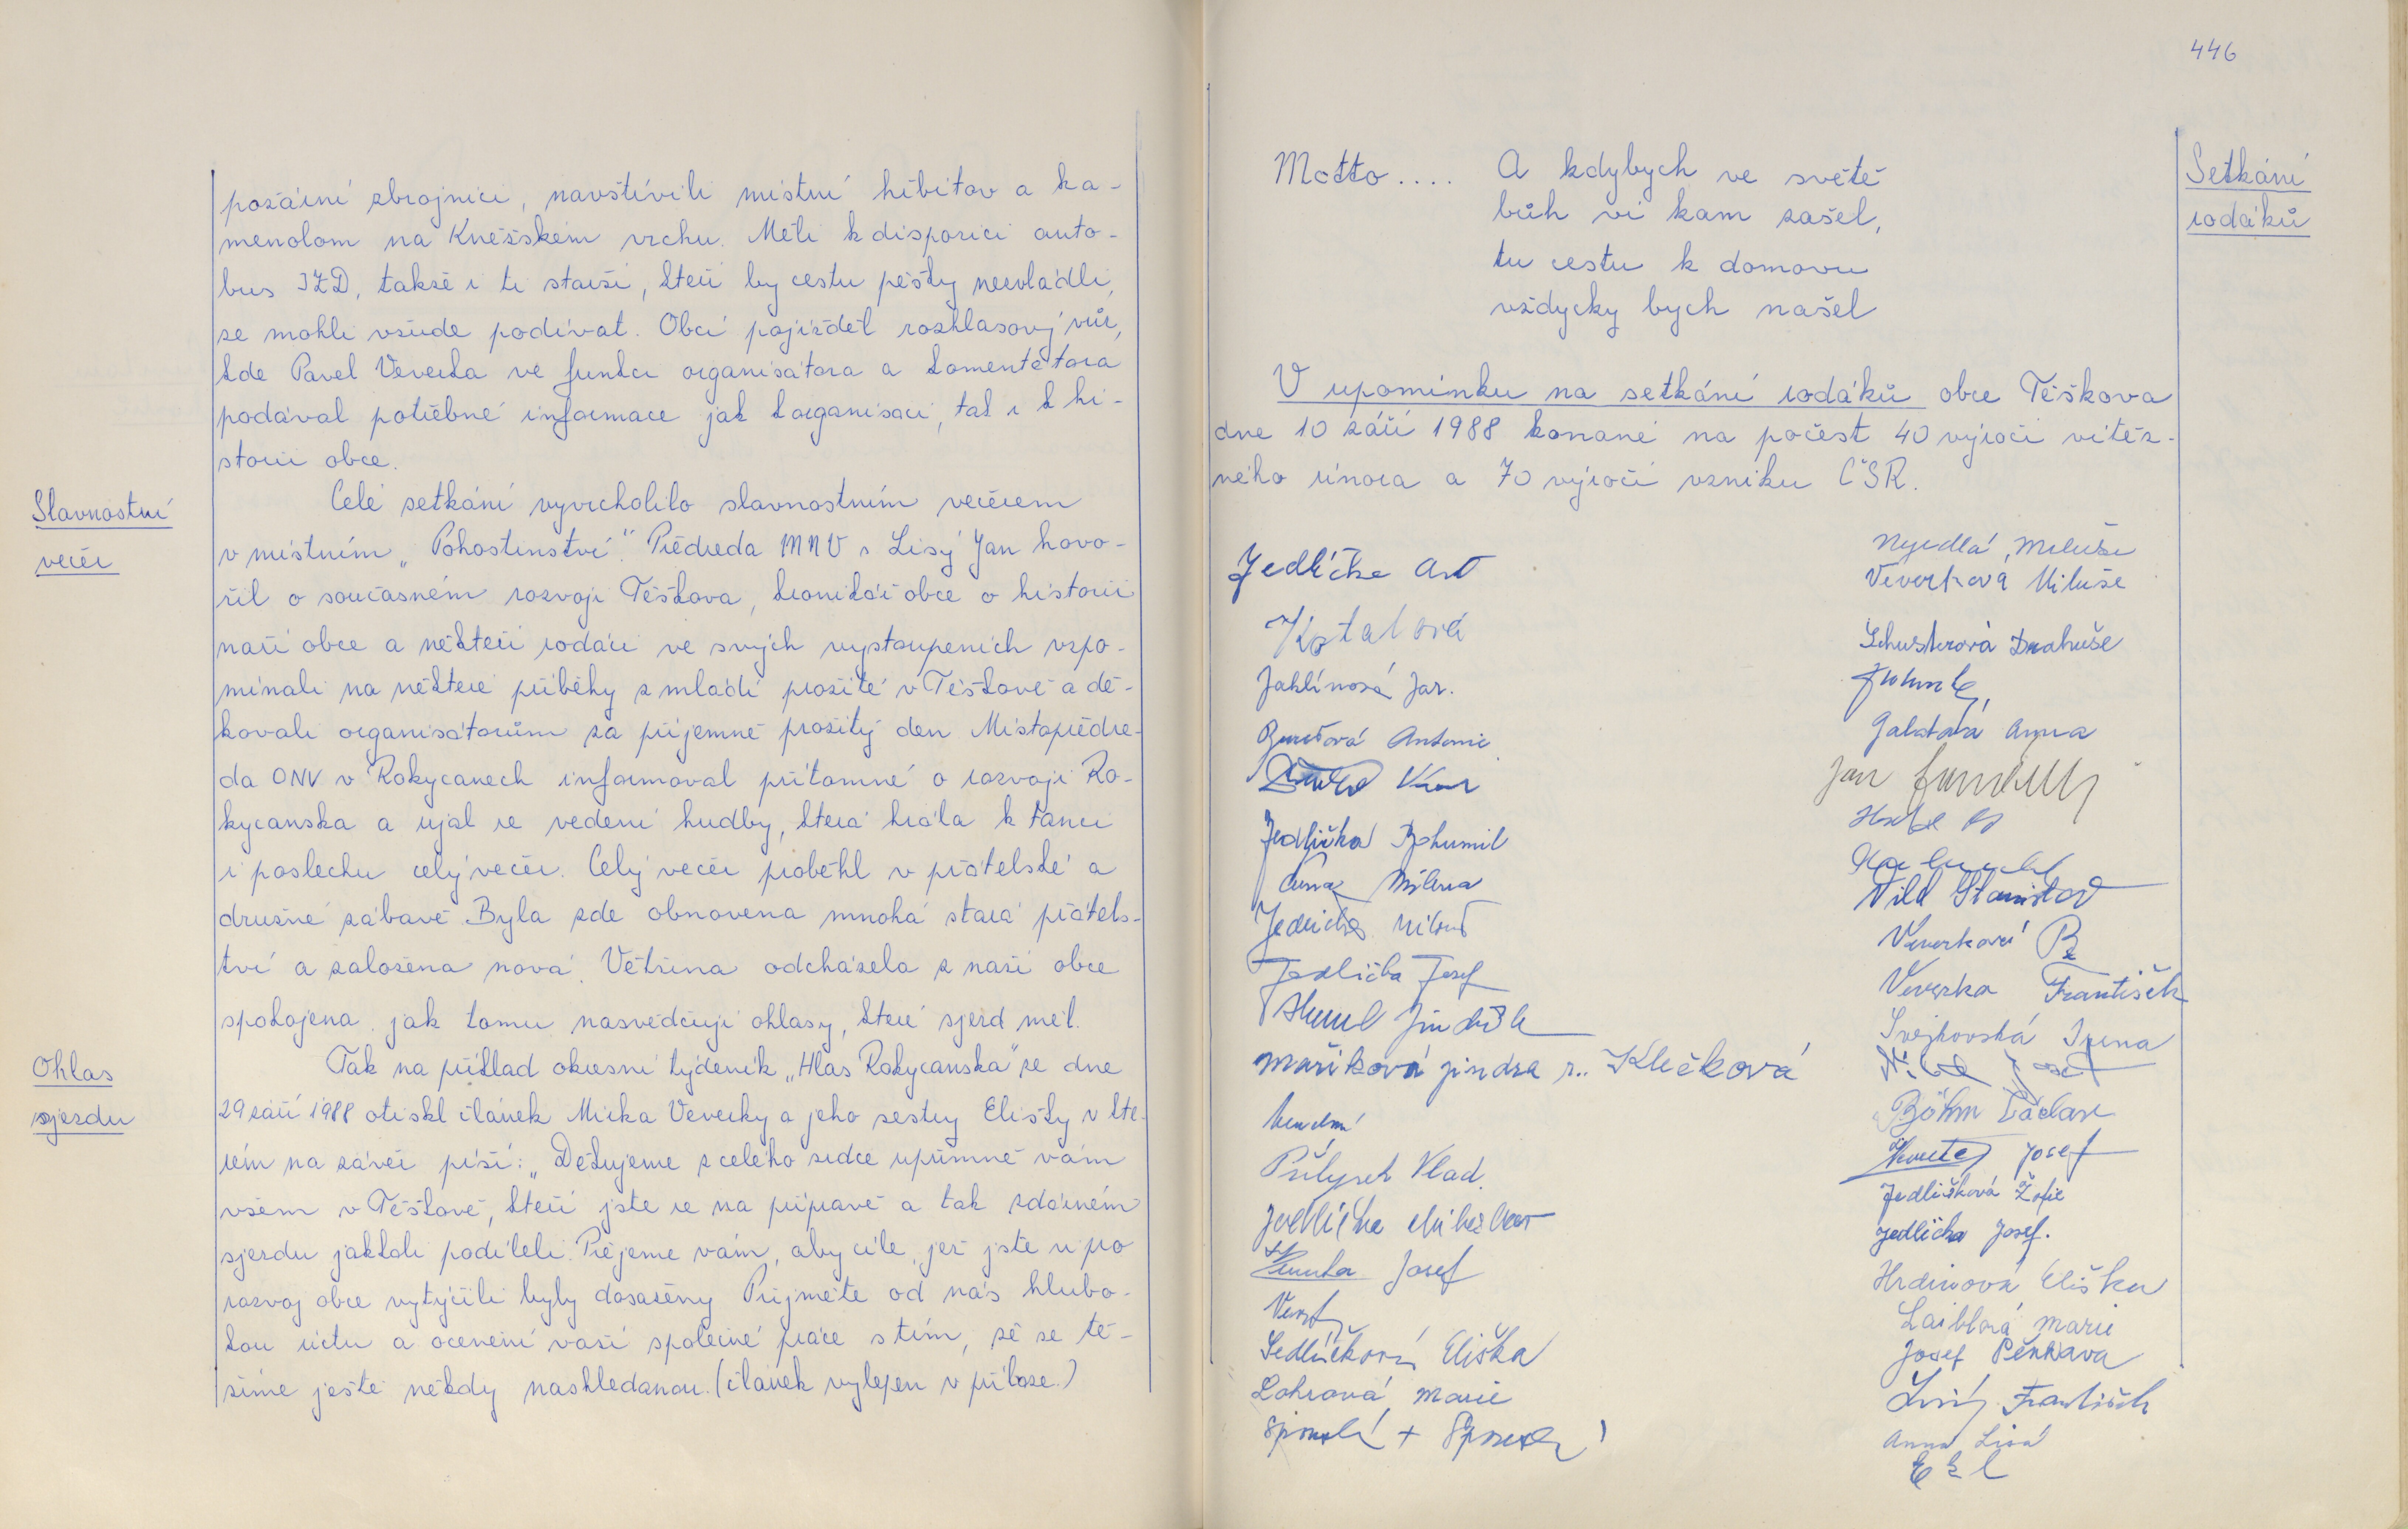 požární zbrojnici, navštívili místní hřbitov a ka-
menolom na Kněžském vrchu. Měli k disposici auto-
bus JZD, takže i ti starší, kteří by cestu pěšky nezvládli,
se mohli všude podívat. Obcí pojížděl rozhlasový vůz,
kde Pavel Veverka ve funkci organisátora a komentátora
podával potřebné informace jak k organisaci, tak i k hi-
storii obce.
Slavnostní
večer
Celé setkání vyvrcholilo slavnostním večerem
v místním „Pohostinství". Předseda MNV s Lisý Jan hovo-
řil o současném rozvoji Těškova, kronikář obce o historii
naší obce a někteří rodáci ve svých vystoupeních vzpo-
mínali na některé příběhy z mládí prožité v Těškově a dě-
kovali organisátorům za příjemně prožitý den Místopředse-
da ONV v Rokycanech informoval přítomné o rozvoji Ro-
kycanska a ujal se vedení hudby, která hrála k tanci
i poslechu celý večer. Celý večer proběhl v přátelské a
družné zábavě. Byla zde obnovena mnohá stará přátels-
tví a založena nová. Většina odcházela z naší obce
spokojena, jak tomu nasvědčují ohlasy, které sjezd měl.
Ohlas
sjezdu
Tak na příklad okresní týdeník „Hlas Rokycanska" ze dne
29 září 1988 otiskl článek Mirka Veverky a jeho sestry Elišky v kte-
rém na závěr píší: „Děkujeme z celého srdce upřímně vám
všem v Těškově, kteří jste se na přípravě a tak zdárném
sjezdu jakkoli podíleli. Přejeme vám, aby cíle, jež jste si pro
rozvoj obce vytýčili byly dosaženy Přijměte od nás hlubo-
kou úctu a ocenění vaší společné práce s tím, že se tě-
šíme ještě někdy nashledanou. (článek vylepen v příloze.)
446
Setkání
rodáků
Motto.... A kdybych ve světě
bůh ví kam zašel,
tu cestu k domovu
vždycky bych našel
V upomínku na setkání rodáků obce Těškova
dne 10 září 1988 konané na počest 40 výročí vítěz-
ného února a 70 výročí vzniku ČSR.
Jedlička Ant
Jahlínová Jar.
Antonie
Jedlička Bohumil
Milena
Jedlička Miloš
Jedlička Josef
Jindřich
Maříková Jindra r.. Klečková
Vlad.
Jedlička
Josef
Sedláčková Eliška
Lohrová Marie
Nejedlá, Miluše
Veverková Miluše
Schusterová Drahuše
Anna
Jan
Vild Stanislav
Veverková
Veverka František
Švejkovská Irena
Böhm Václav
Josef
Jedličková Žofie
Jedlička Josef.
Hrdinová Eliška
Laiblová Marie
Josef Pěnkava
Lisý František
Anna Lisá